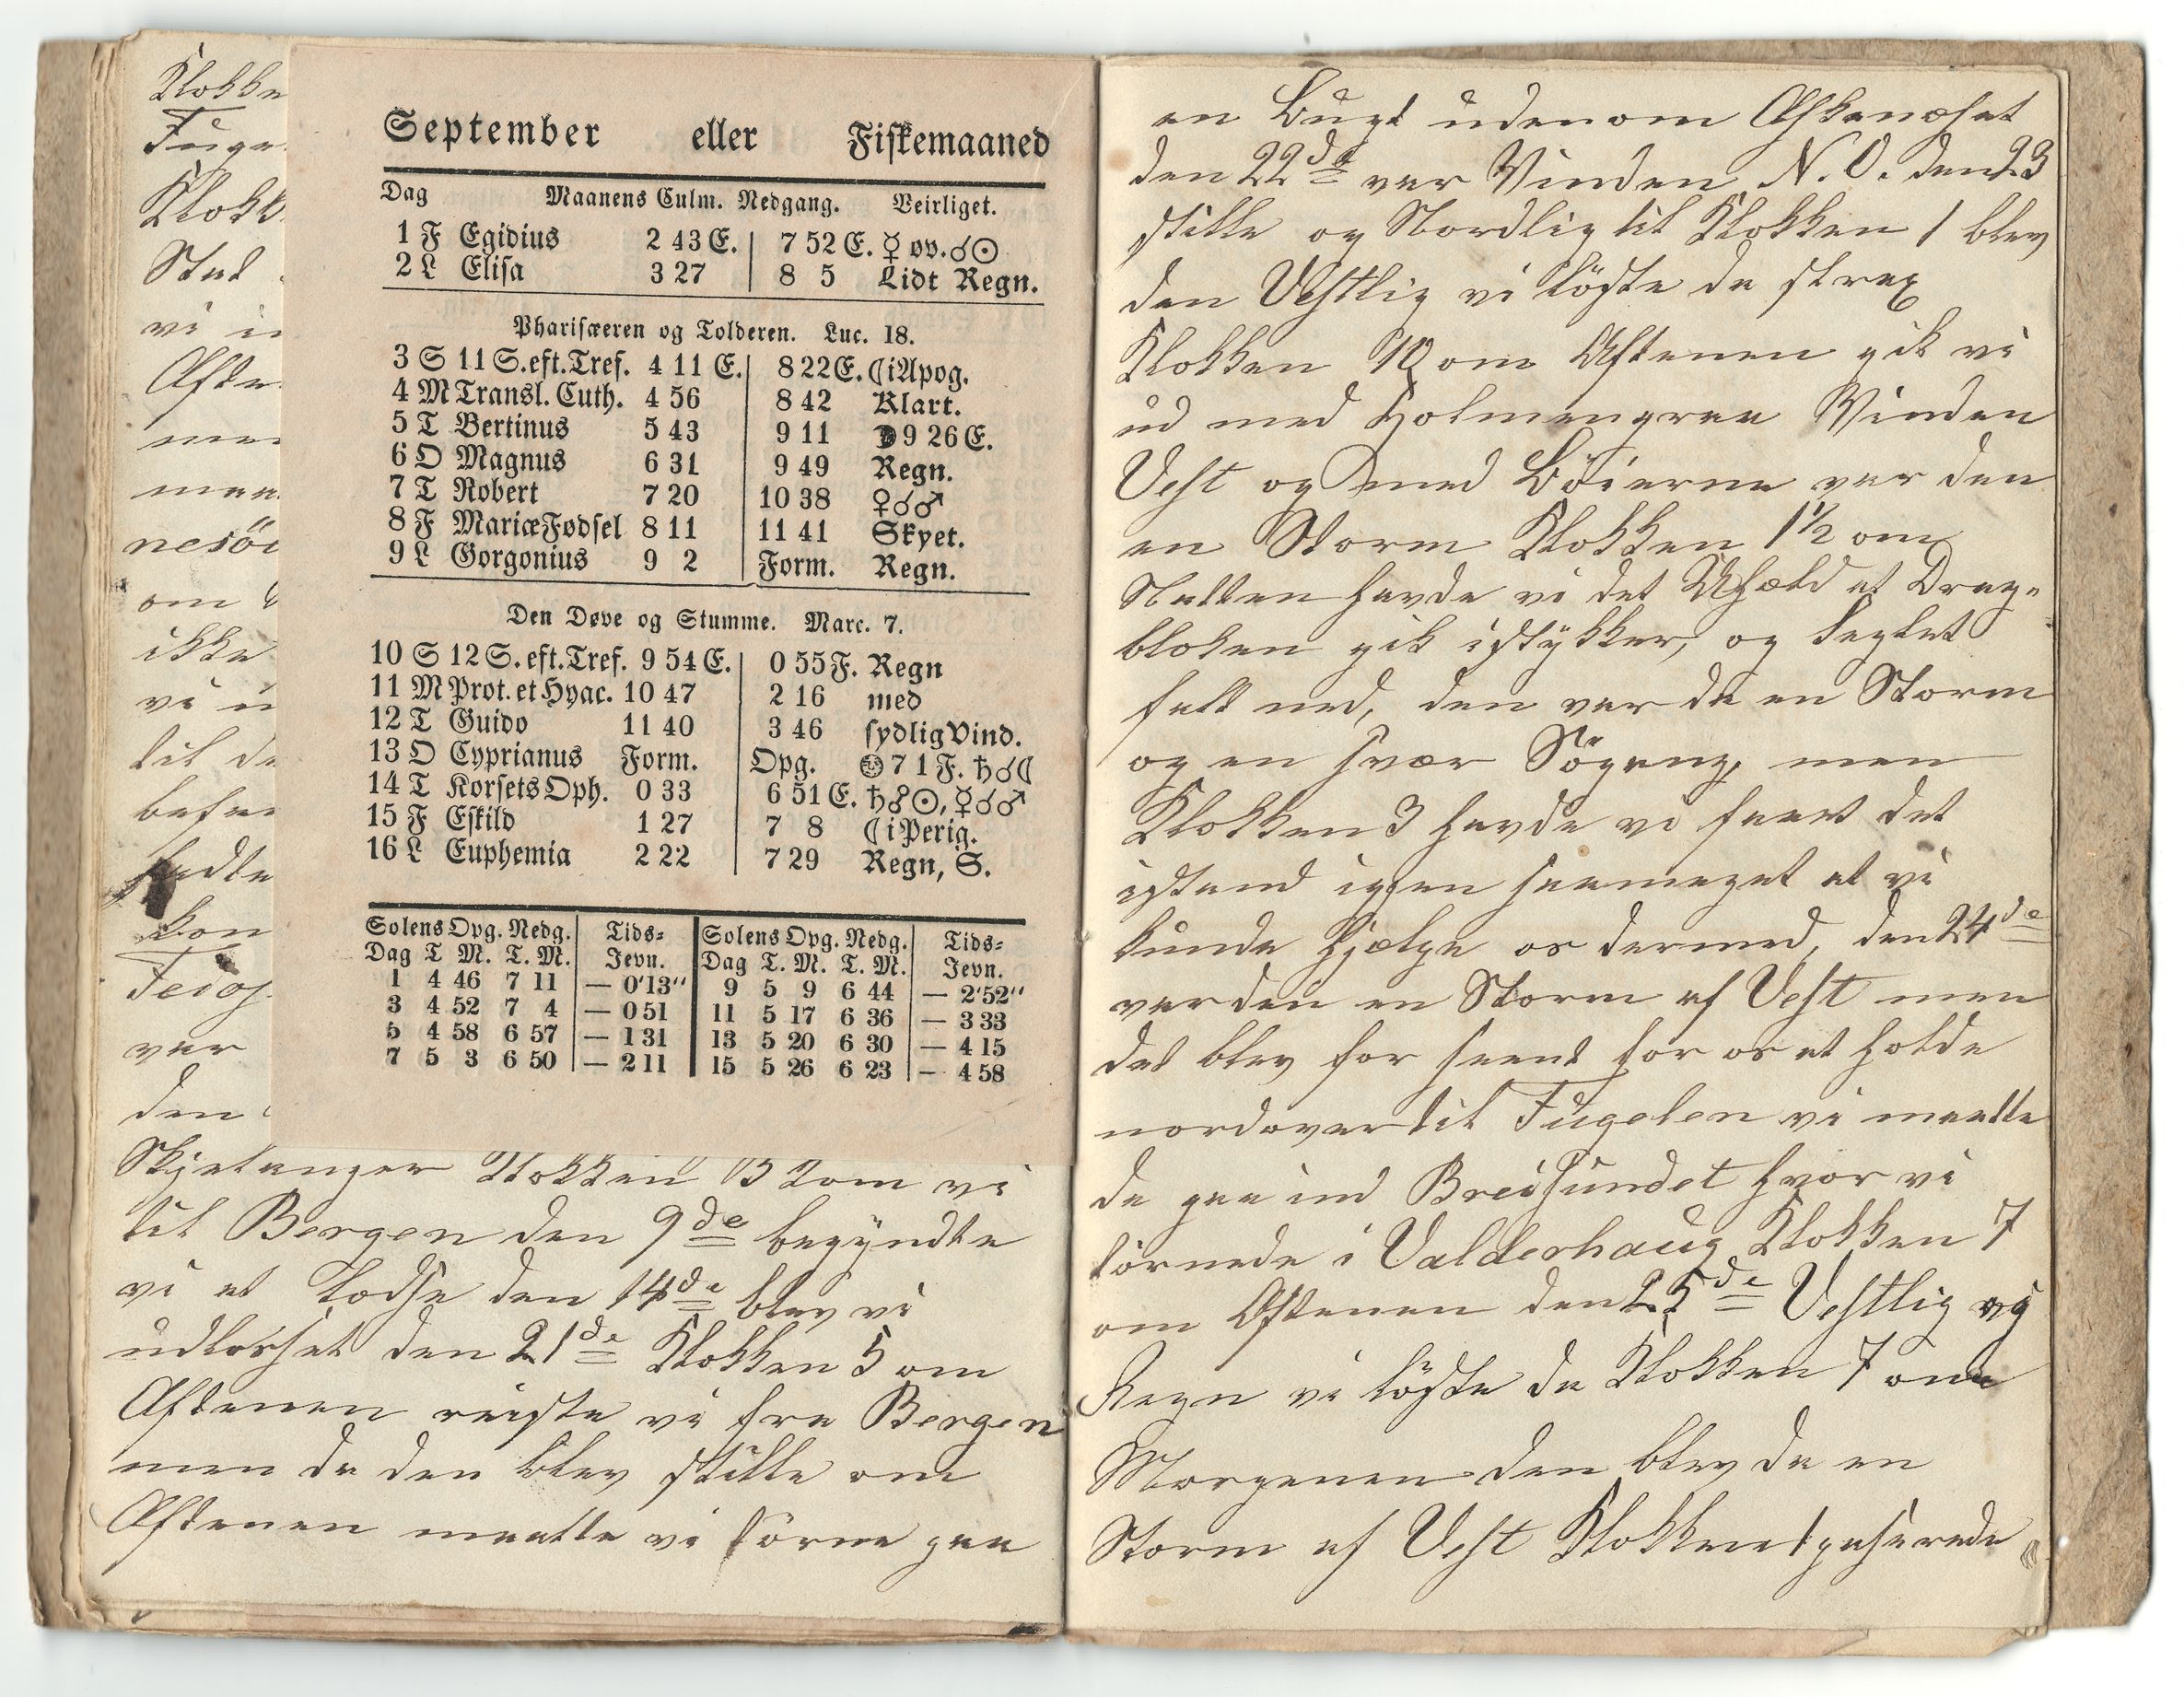 Klokke
Fuge
Klokk
Stad
vi i
Afte
men
maa
nesöi
om
ikke
vi u
til de
Kom
Feioj
var
den
September eller Fiskemaaned
Dag Maanens Culm. Nedgang. Veirliget.
1 F Egidius 2 43 E. 7 52 E. ☿ øv. ☌ ☉
2 L Elisa 3 27 8 5 Lidt Regn.
Pharisæeren og Tolderen. Luc. 18.
3 S 11 S. eft. Tref. 4 11 E. 8 22 E. ☾ i Apog.
4 M Transl. Cuth. 4 56 8 42 Klart.
5 T Bertinus 5 43 9 11 ☽ 9 26 E.
6 O Magnus 6 31 9 49 Regn.
7 T Robert 7 20 10 38 ♀ ☌ ♂
8 F Mariæ Fødsel 8 11 11 41 Skyet.
9 L Gorgonius 9 2 Form. Regn.
Den Døve og Stumme. Marc. 7.
10 S 12 S. eft. Tref. 9 54 E. 0 55 F. Regn
11 M Prot. et Hyac. 10 47 2 16 med
12 T Guido 11 40 3 46 sydlig Vind.
13 O Cyprianus Form. Opg. 🌝 7 1 F. ♄ ☌ ☾
14 T Korsets Oph. 0 33 6 51 E. ♄ ☍ ☉, ☿ ☌ ♂
15 F Eskild 1 27 7 8 ☾ i Perig.
16 L Euphemia 2 22 7 29 Regn, S.
Solens Opg. Nedg. Tids= Solens Opg. Nedg. Tids=
Dag T. M. T. M. Jevn. Dag T. M. T. M. Jevn.
1 4 46 7 11 — 0'13" 9 5 9 6 44 — 2'52"
3 4 52 7 4 — 0 51 11 5 17 6 36 — 3 33
5 4 58 6 57 — 1 31 13 5 20 6 30 — 4 15
7 5 3 6 50 — 2 11 15 5 26 6 23 — 4 58
Skjelanger Klokken 3 kom vi
til Bergen den 9de begyndte
vi at lodse den 14de blev vi
udlosset den 21de Klokken 5 om
Aftenen reiste vi fra Bergen
men da den blev stille om
Aftenen maatte vi törne paa
en Bugt udenom Askenæset
den 22de var Vinden N. O. den 23
stille og Nordlig til Klokken 1 blev
den Vestlig vi löste da strax
Klokken 10 om Aftenen gik vi
ud med Holmengraa Vinden
Vest og med Böierne var den
en Storm Klokken 1½ om
Natten havde vi det Uhæld at Drag=
bloken gik istykker, og Seglet
falt ned, den var da en Storm
og en svær Sögang, men
Klokken 3 havde vi faaet det
istand igjen saameget at vi
kunde hjælpe os dermed, den 24de
var den en Storm af Vest men
det blev for seent for os at holde
nordover til Fugelen vi maatte
da gaa ind Breisundet hvor vi
törnede i Valderhaug Klokken 7
om Aftenen den 25de Vestlig og
Regn vi löste da Klokken 7 om
Morgenen den blev da en
Storm af Vest Klokken 1 paserede